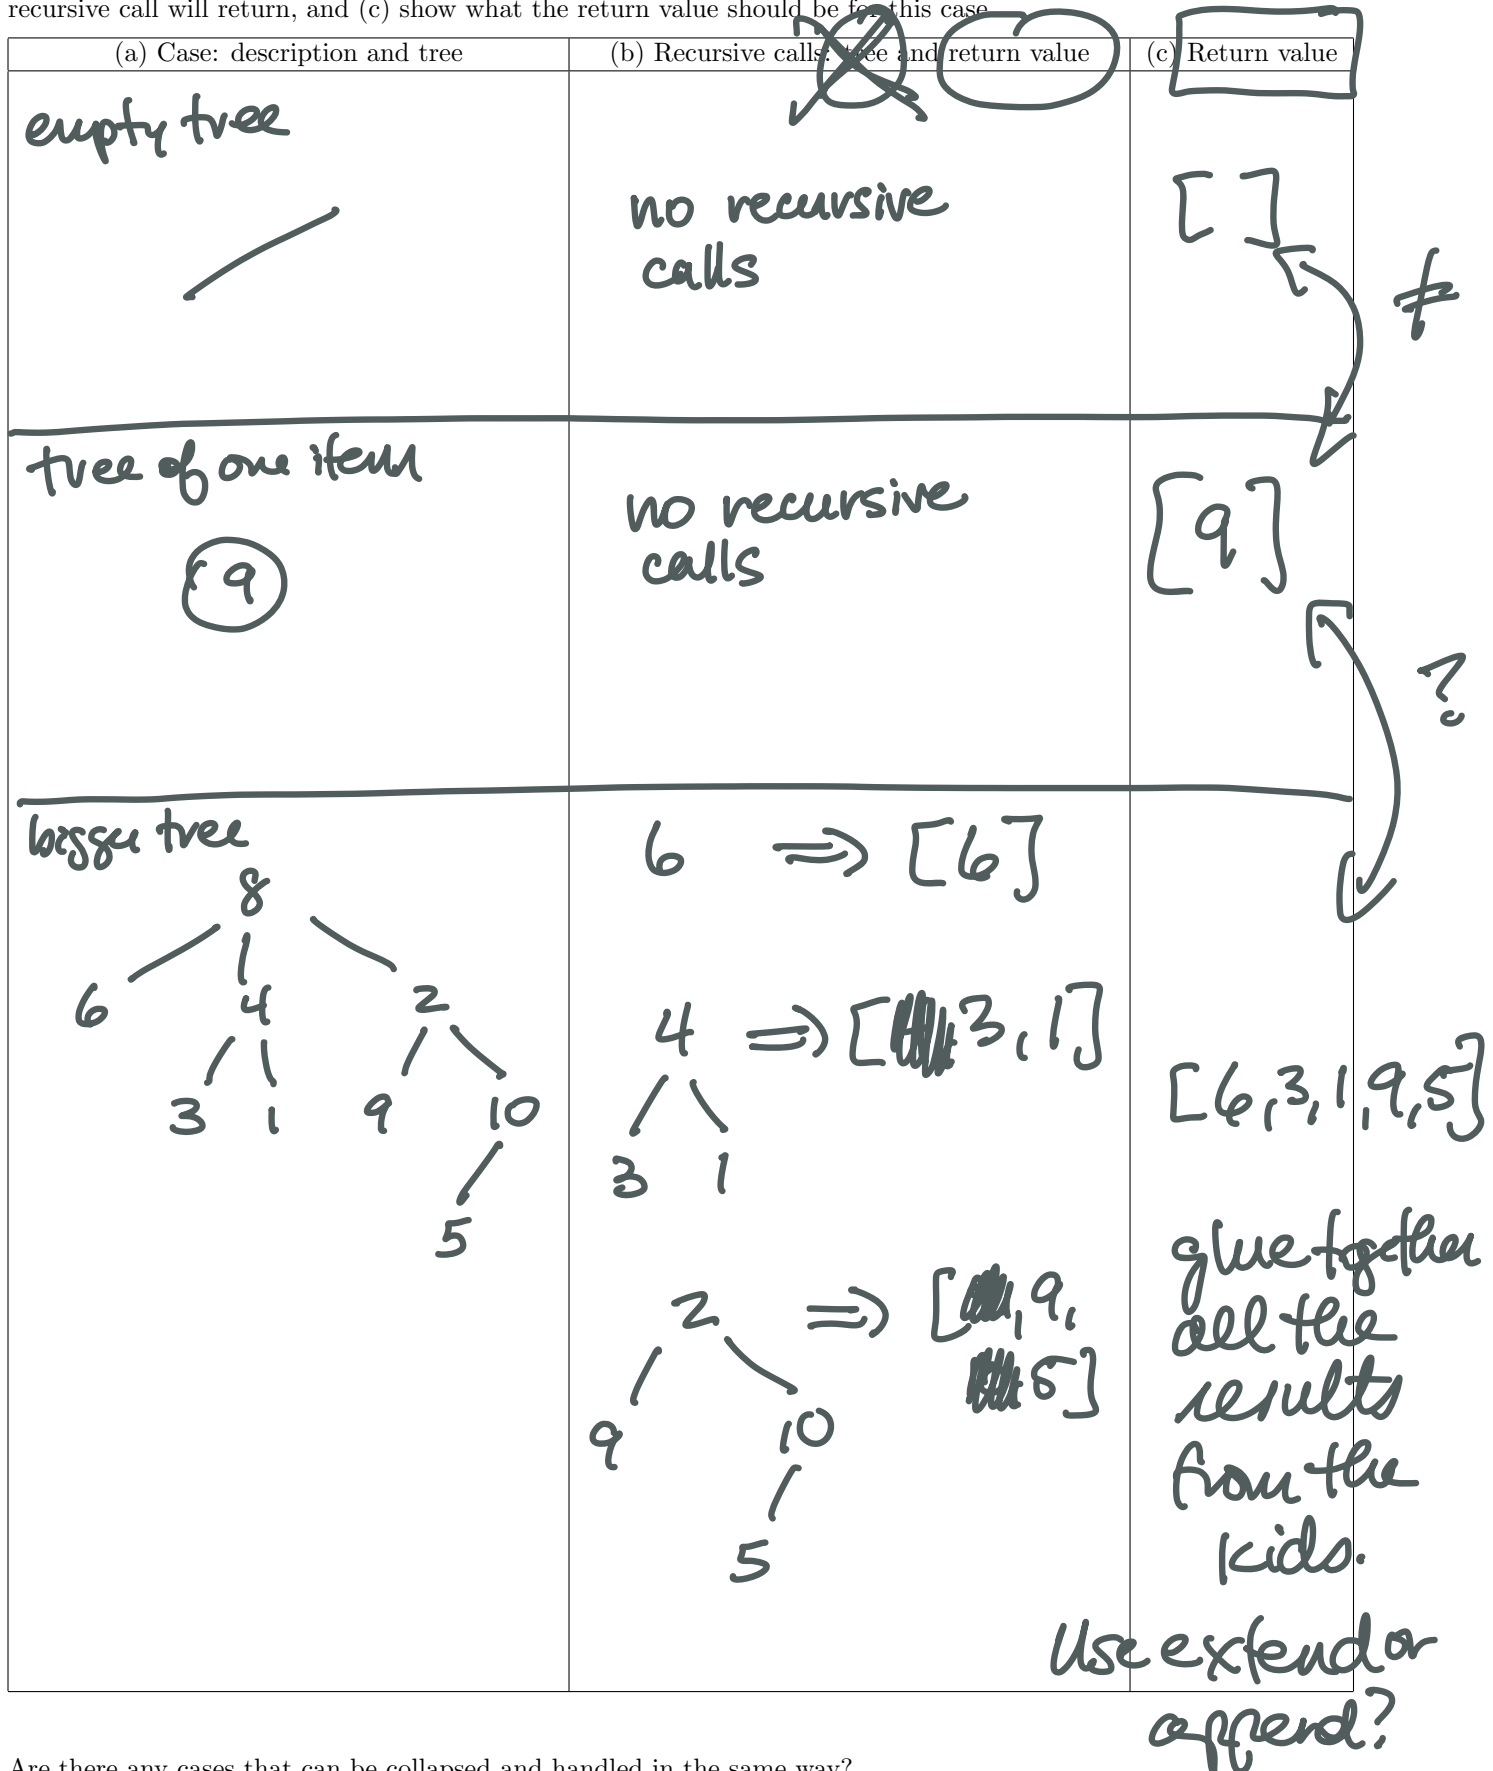 recursive call will return, and (c) show what the return value should be for this case.
(a) Case: description and tree
(b) Recursive calls: tree and return value
(c) Return value
empty tree
no recursive
calls
[ ]
≠
tree of one item
9
no recursive
calls
[9]
?
bigger tree
8
6 4 2
3 1 9 10
5
6 ⇒ [6]
4 ⇒ [3, 1]
3 1
2 ⇒ [, 9,
5]
9 10
5
[6, 3, 1, 9, 5]
glue together
all the
results
from the
kids.
Use extend or
append?
Are there any cases that can be collapsed and handled in the same way?